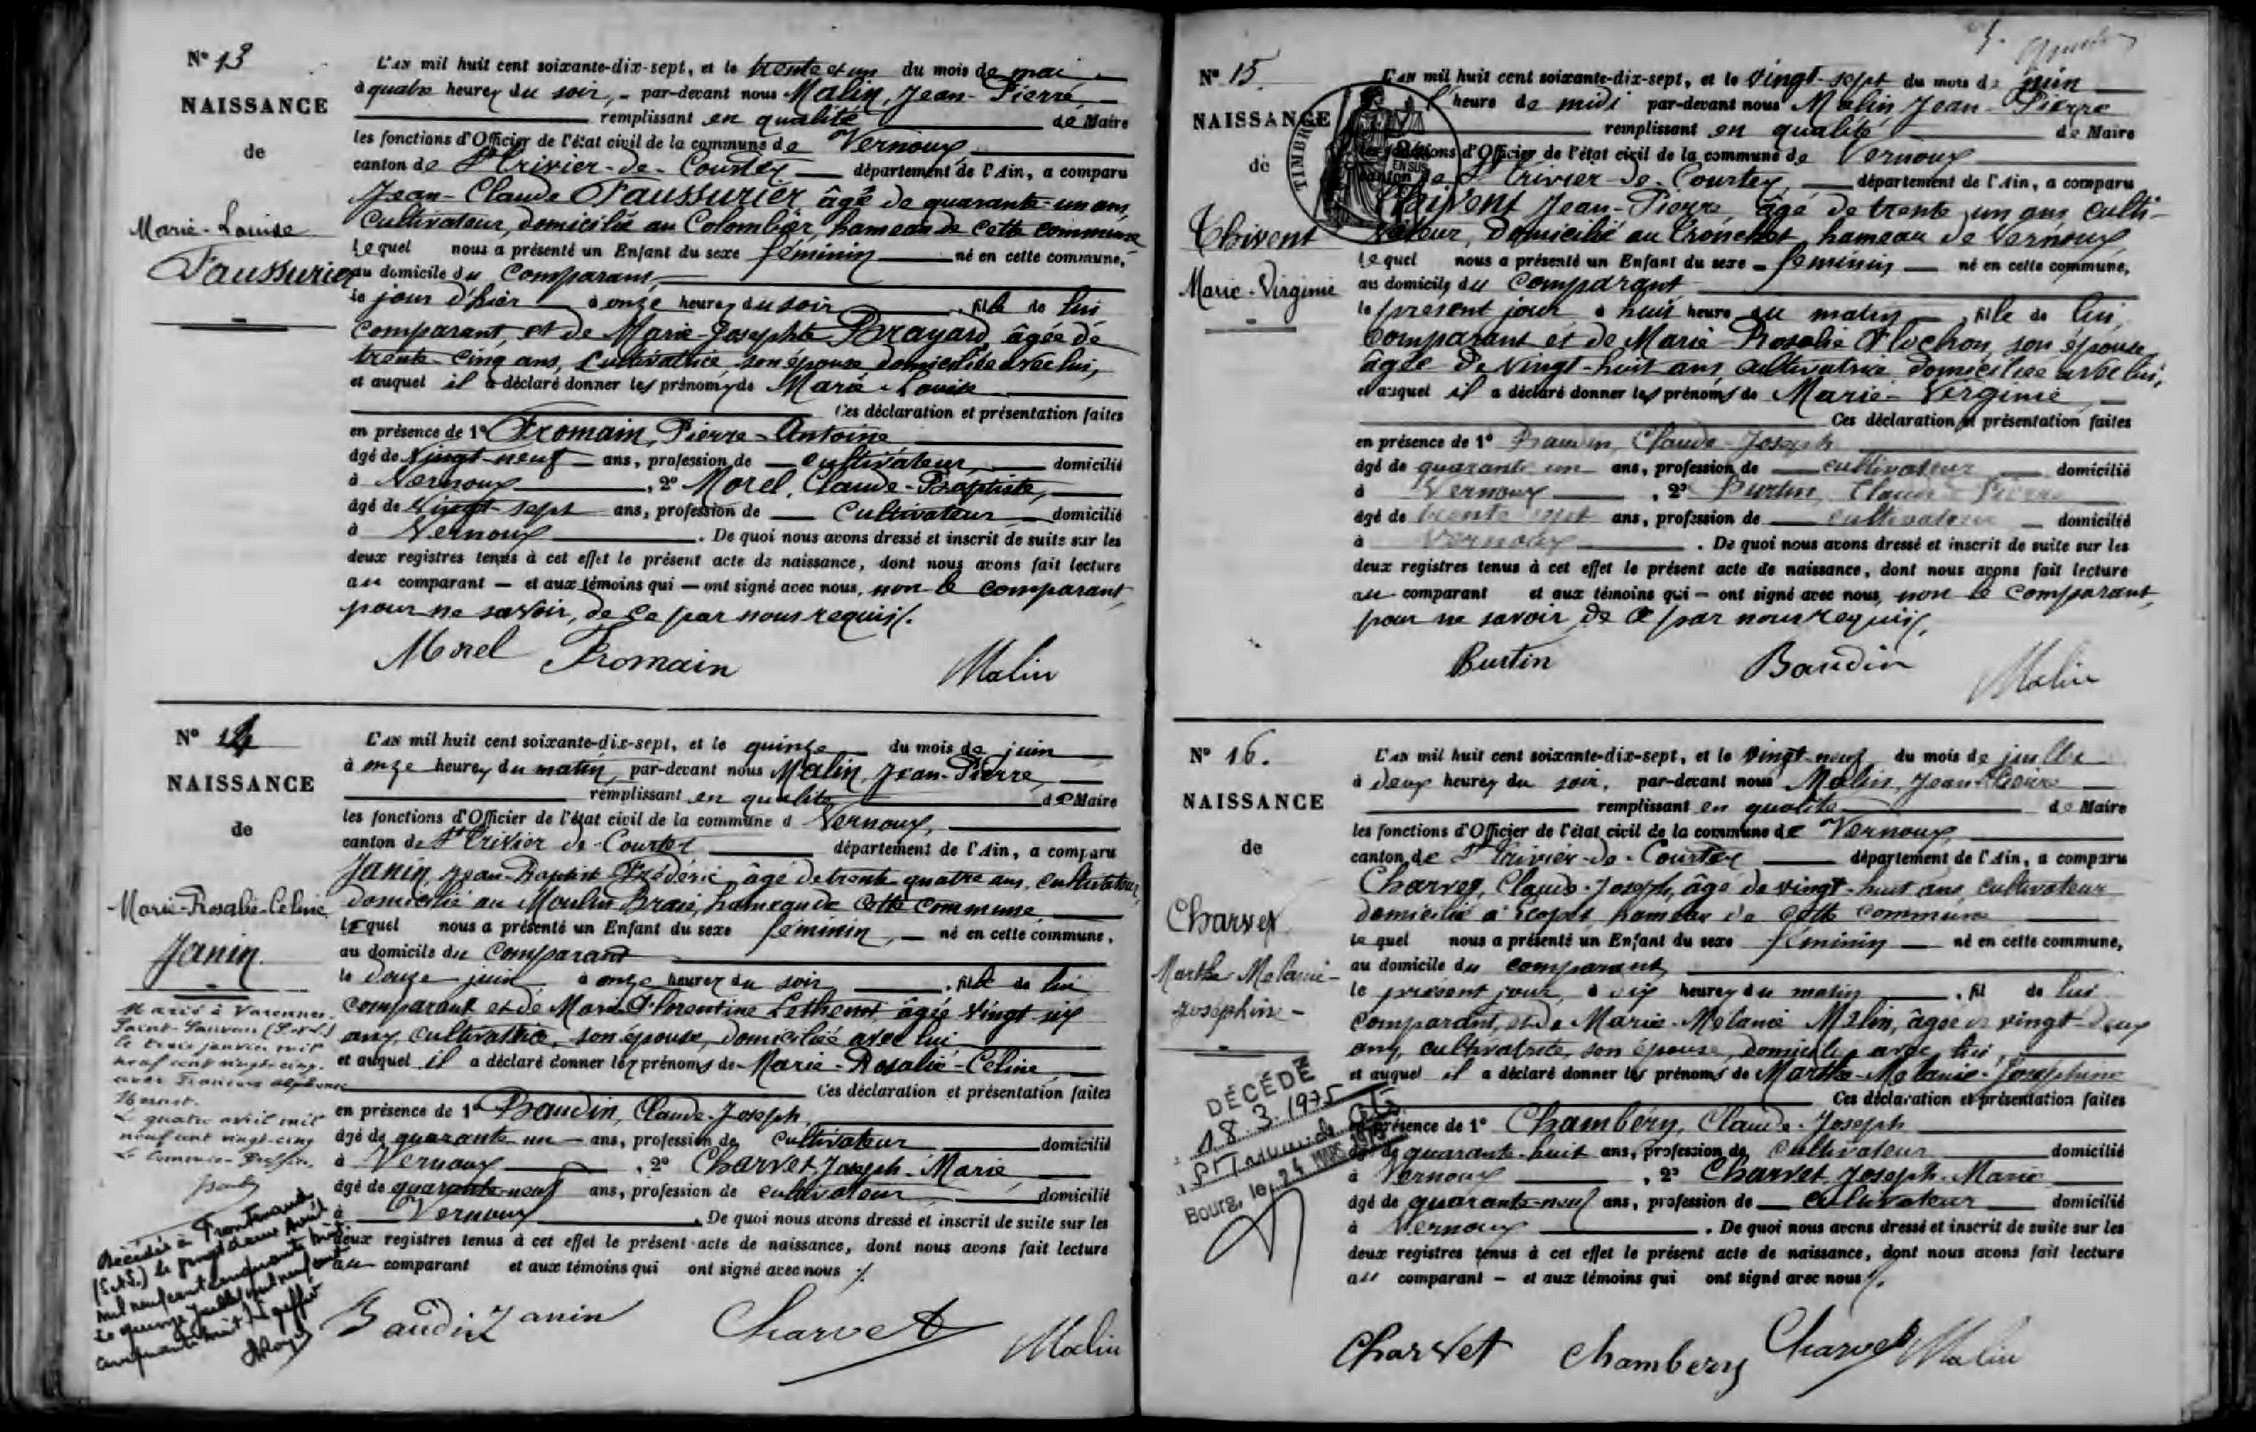 N° 13
NAISSANCE
de
Marie-Louise
Faussurier
L'AN mil huit cent soixante-dix-sept, et le trente et un du mois de mai
à quatre heures du soir, par-devant nous Malin, Jean-Pierre,
remplissant en qualité de Maire
les fonctions d'Officier de l'état civil de la commune de Vernoux
canton de St Trivier-de-Courtes département de l'Ain, a comparu
Jean-Claude Faussurier, âgé de quarante-un ans,
cultivateur, domicilié au Colombier, hameau de cette commune
Lequel nous a présenté un Enfant du sexe féminin né en cette commune,
au domicile du comparant,
le jour d'hier à onze heures du soir, fille de lui
comparant, et de Marie-Josephte Brayard, âgée de
trente-cinq ans, cultivatrice, son épouse domiciliée avec lui,
et auquel il a déclaré donner les prénoms de Marie-Louise
Ces déclaration et présentation faites
en présence de 1° Fromain, Pierre-Antoine
âgé de vingt-neuf ans, profession de cultivateur, domicilié
à Vernoux, 2° Morel, Claude-Baptiste,
âgé de vingt-sept ans, profession de cultivateur domicilié
à Vernoux. De quoi nous avons dressé et inscrit de suite sur les
deux registres tenus à cet effet le présent acte de naissance, dont nous avons fait lecture
au comparant — et aux témoins qui — ont signé avec nous, non le comparant,
pour ne savoir, de ce par nous requis.
Morel Fromain Malin
N° 14
NAISSANCE
de
Marie-Rosalie-Céline
Janin
Marié à Varennes
Saint-Sauveur (S.&L.)
le treize janvier mil
neuf cent vingt-cinq
avec François Alphonse
Le quatre avril mil
neuf cent vingt-cinq
Le Commis-Greffier
Décédée à Frontenaud
(S.&L.) le vingt deux avril
mil neuf cent cinquante huit
Le quinze juillet mil neuf cent
cinquante huit Le greffier
L'AN mil huit cent soixante-dix-sept, et le quinze du mois de juin
à onze heures du matin, par-devant nous Malin, Jean-Pierre,
remplissant en qualité de Maire
les fonctions d'Officier de l'état civil de la commune d Vernoux,
canton de St Trivier de-Courtes département de l'Ain, a comparu
Janin, Jean-Baptiste Frédéric, âgé de trente quatre ans, cultivateur,
domicilié au Moulin Brais, hameau de cette commune
Lequel nous a présenté un Enfant du sexe féminin, né en cette commune,
au domicile du comparant
le douze juin à onze heures du soir, fille de lui
comparant et de Marie Florentine Lethenot, âgée vingt-six
ans, cultivatrice, son épouse, domiciliée avec lui
et auquel il a déclaré donner les prénoms de Marie-Rosalie-Céline
Ces déclaration et présentation faites
en présence de 1° Baudin, Claude-Joseph,
âgé de quarante-un ans, profession de cultivateur domicilié
à Vernoux, 2° Charvet Joseph-Marie,
âgé de quarante-neuf ans, profession de cultivateur domicilié
à Vernoux. De quoi nous avons dressé et inscrit de suite sur les
deux registres tenus à cet effet le présent acte de naissance, dont nous avons fait lecture
au comparant et aux témoins qui ont signé avec nous
Baudin Janin Charvet Malin
N° 15
NAISSANCE
de
Thivent
Marie-Virginie
TIMBRE
EN SUS
L'AN mil huit cent soixante-dix-sept, et le vingt-sept du mois de juin
l'heure de midi par-devant nous Malin Jean-Pierre
remplissant en qualité de Maire
les fonctions d'Officier de l'état civil de la commune de Vernoux
canton de St Trivier-de-Courtes, département de l'Ain, a comparu
Thivent Jean-Pierre, âgé de trente-un ans, culti-
vateur, domicilié au Tronchet, hameau de Vernoux
Lequel nous a présenté un Enfant du sexe féminin né en cette commune,
au domicile du comparant
le présent jour à huit heure du matin, fille de lui
comparant et de Marie-Rosalie Flochon, son épouse
âgée de vingt-huit ans cultivatrice domiciliée avec lui,
et auquel il a déclaré donner les prénoms de Marie-Virginie,
Ces déclaration et présentation faites
en présence de 1° Baudin, Claude-Joseph
âgé de quarante un ans, profession de cultivateur domicilié
à Vernoux, 2° Burtin, Claude-Pierre
âgé de trente sept ans, profession de cultivateur domicilié
à Vernoux. De quoi nous avons dressé et inscrit de suite sur les
deux registres tenus à cet effet le présent acte de naissance, dont nous avons fait lecture
au comparant et aux témoins qui — ont signé avec nous, non le comparant,
pour ne savoir de ce par nous requis,
Burtin Baudin Malin
N° 16.
NAISSANCE
de
Charvet
Marthe Mélanie-
Joséphine-
DÉCÉDÉ
18.3.1975
Bourg, le 24 MARS 1975
L'AN mil huit cent soixante-dix-sept, et le vingt-neuf du mois de juillet
à deux heures du soir, par-devant nous Malin, Jean-Pierre
remplissant en qualité de Maire
les fonctions d'Officier de l'état civil de la commune de Vernoux
canton de St Trivier-de-Courtes département de l'Ain, a comparu
Charvet, Claude-Joseph, âgé de vingt-huit ans, cultivateur
domicilié à Escopet hameau de cette commune
lequel nous a présenté un Enfant du sexe féminin né en cette commune,
au domicile du comparant,
le présent jour, à dix heures du matin, fil de lui
comparant, et de Marie-Mélanie Malin, âgée de vingt-deux
ans, cultivatrice, son épouse, domiciliée avec lui,
et auquel il a déclaré donner les prénoms de Marthe-Mélanie-Joséphine
Ces déclaration et présentation faites
en présence de 1° Chambéry, Claude-Joseph
âgé de quarante-huit ans, profession de cultivateur domicilié
à Vernoux, 2° Charvet, Joseph-Marie
âgé de quarante-neuf ans, profession de cultivateur domicilié
à Vernoux. De quoi nous avons dressé et inscrit de suite sur les
deux registres tenus à cet effet le présent acte de naissance, dont nous avons fait lecture
au comparant — et aux témoins qui ont signé avec nous.
Charvet Chambery Charvet Malin